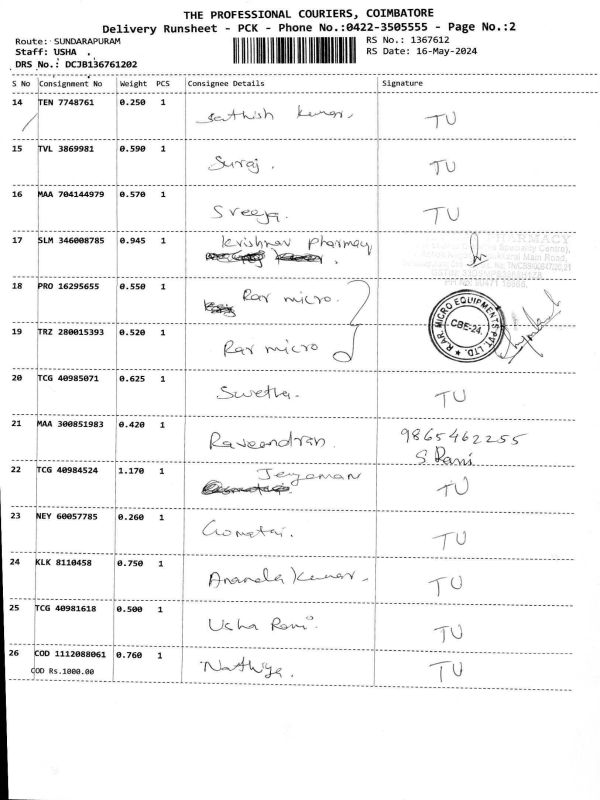 THE PROFESSIONAL COURIERS, COIMBATORE
Delivery Runsheet - PCK - Phone No.:0422-3505555 - Page No.:2
Route: SUNDARAPURAM RS No.: 1367612
Staff: USHA . RS Date: 16-May-2024
DRS No.: DCJB136761202
S No Consignment No Weight PCS Consignee Details Signature
14 TEN 7748761 0.250 1 Sathish Kumar. TU
15 TVL 3869981 0.590 1 Suraj. TU
16 MAA 704144979 0.570 1 Sreeja. TU
17 SLM 346008785 0.945 1 Krishnav pharmacy
18 PRO 16295655 0.550 1 Rar micro.
R.A.R. MICRO EQUIPMENTS PVT. LTD. CBE-24.
19 TRZ 280015393 0.520 1 Rar micro
20 TCG 40985071 0.625 1 Swetha. TU
21 MAA 300851983 0.420 1 Raveendran. 9865462255
S Rani
22 TCG 40984524 1.170 1 Jeyaman TU
23 NEY 60057785 0.260 1 Gomathi. TU
24 KLK 8110458 0.750 1 Ananda Kumar. TU
25 TCG 40981618 0.500 1 Usha Rani. TU
26 COD 1112088061 0.760 1 Nathiya. TU
COD Rs.1000.00